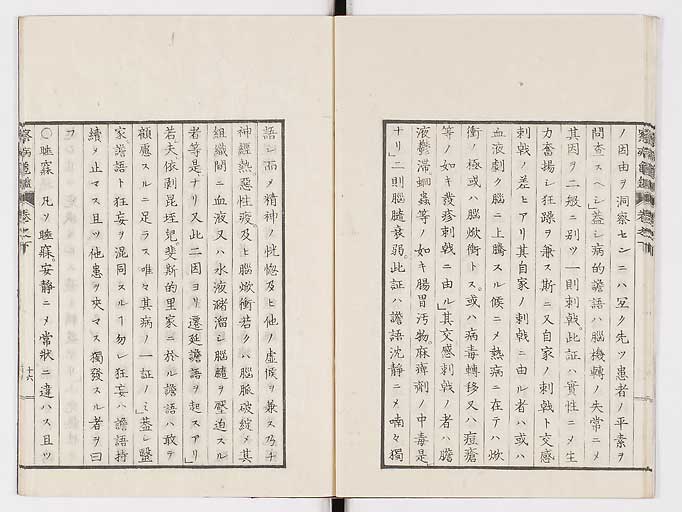 ノ因由ヲ洞察センニハ冝ク先ツ患者ノ平素ヲ
問査スヘシ」蓋シ病的譫語ハ腦機轉ノ失常ニメ
其因ヲ二般ニ別ツ一則刺戟。此証ハ實性ニメ生
力奮揚シ狂躁ヲ兼ス斯ニ又自家ノ刺戟ト交感
刺戟ノ差ヒアリ其自家ノ刺戟ニ由ル者ハ或ハ
血液劇ク腦ニ上騰スル候ニメ熱病ニ在テハ焮
衝ノ極或ハ腦焮衝トス。或ハ病毒轉移又ハ痘瘡
等ノ如キ發疹刺戟ニ由ル」其交感刺戟ノ者ハ膽
液欝滞蛔蟲等ノ如キ腸胃汚物。麻痺劑ノ中毒是
ナリ」二則腦髓衰弱。此証ハ譫語沈靜ニメ喃々獨
語シ而メ精神ノ恍惚及ヒ他ノ虚候ヲ兼ス乃チ
神經熱。惡性疫。及ヒ腦焮衝若クハ腦脈破綻メ其
組織間ニ血液又ハ水液瀦溜シ腦髓ヲ壓迫スル
者等是ナリ又此二因ヨリ遷延譫語ヲ起スアリ」
若夫依剥昆垤兒。斐斯的里家ニ於ル譫語ハ敢テ
顧慮スルニ足ラス唯々其病ノ一証ノミ」蓋シ毉
家。譫語ト狂妄ヲ混同スルヿ勿レ狂妄ハ譫語持
續メ止マス且ツ他患ヲ夾マス獨發スル者ヲ曰
フ
○睡寐 凡ソ睡寐。安静ニメ常狀ニ違ハス且ツ
察病龜鑑 巻之下
十六